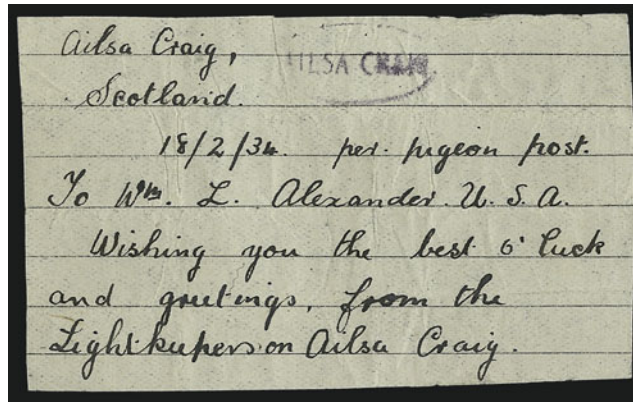 Ailsa Craig,
AILSA CRAIG
Scotland.
18/2/34. per. pigeon post.
To Wm. L. Alexander. U. S. A.
Wishing you the best o' luck
and greetings, from the
Lightkeepers on Ailsa Craig.